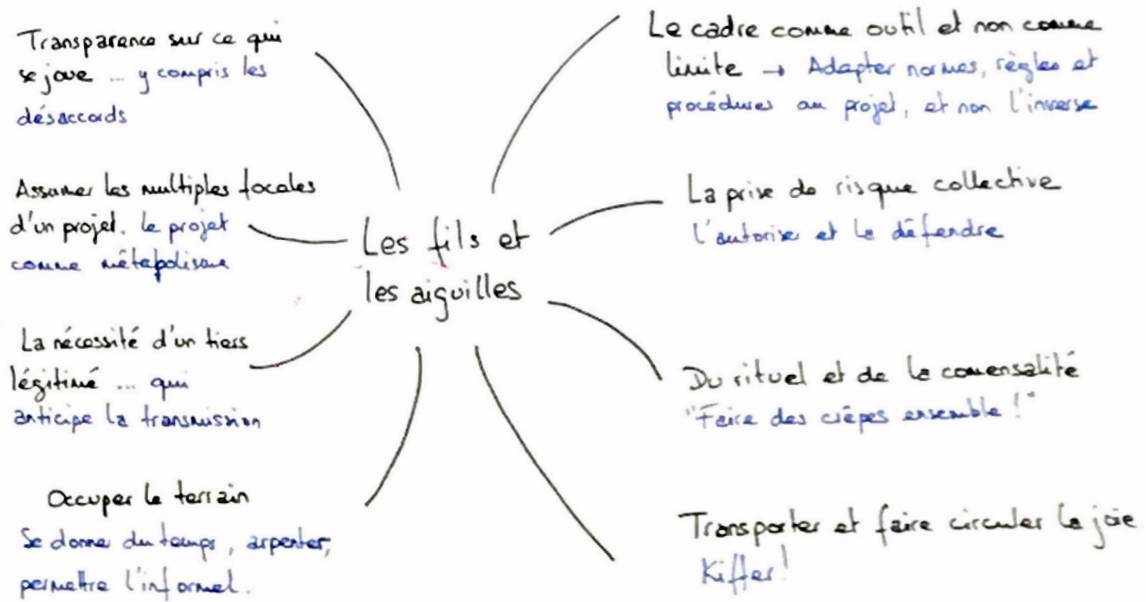 Transparence sur ce qui
se joue ... y compris les
désaccords
Assumer les multiples focales
d'un projet. Le projet
comme métabolisme
La nécessité d'un tiers
légitimé ... qui
anticipe la transmission
Occuper le terrain
Se donne du temps, arpenter,
permettre l'informel.
Les fils et
les aiguilles
Le cadre comme outil et non comme
limite → Adapter normes, règles et
procédures au projet, et non l'inverse
La prise de risque collective
L'autoriser et la défendre
Du rituel et de la comensalité
"Faire des crêpes ensemble !"
Transporter et faire circuler la joie
Kiffer!